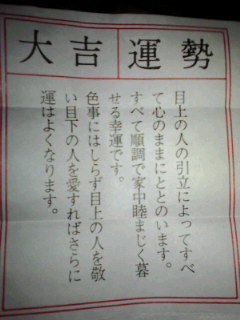 大吉
運勢
目上の人の引立によってすべ
て心のままにととのいます。
すべて順調で家中睦まじく暮
せる幸運です。
色事にはしらず目上の人を敬
い目下の人を愛すればさらに
運はよくなります。